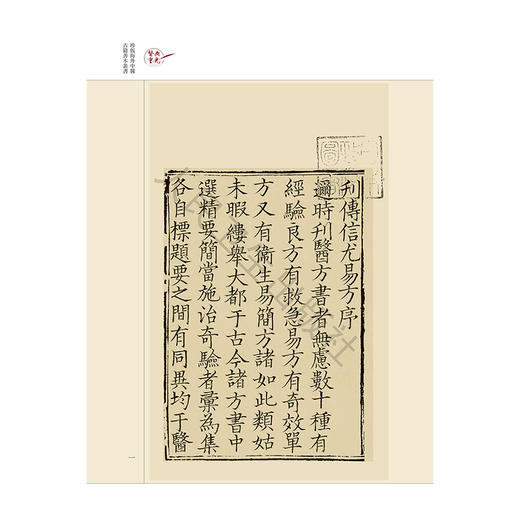 珍版海外中醫
古籍善本叢書
刊傳信尤易方序
邇時刊醫方書者無慮數十種有
經驗良方有救急易方有奇效單
方又有衞生易簡方諸如此類姑
未暇縷舉大都于古今諸方書中
選精要簡當施治奇驗者彙為集
各自標題要之間有同異均于醫
一
人民衛生出版社